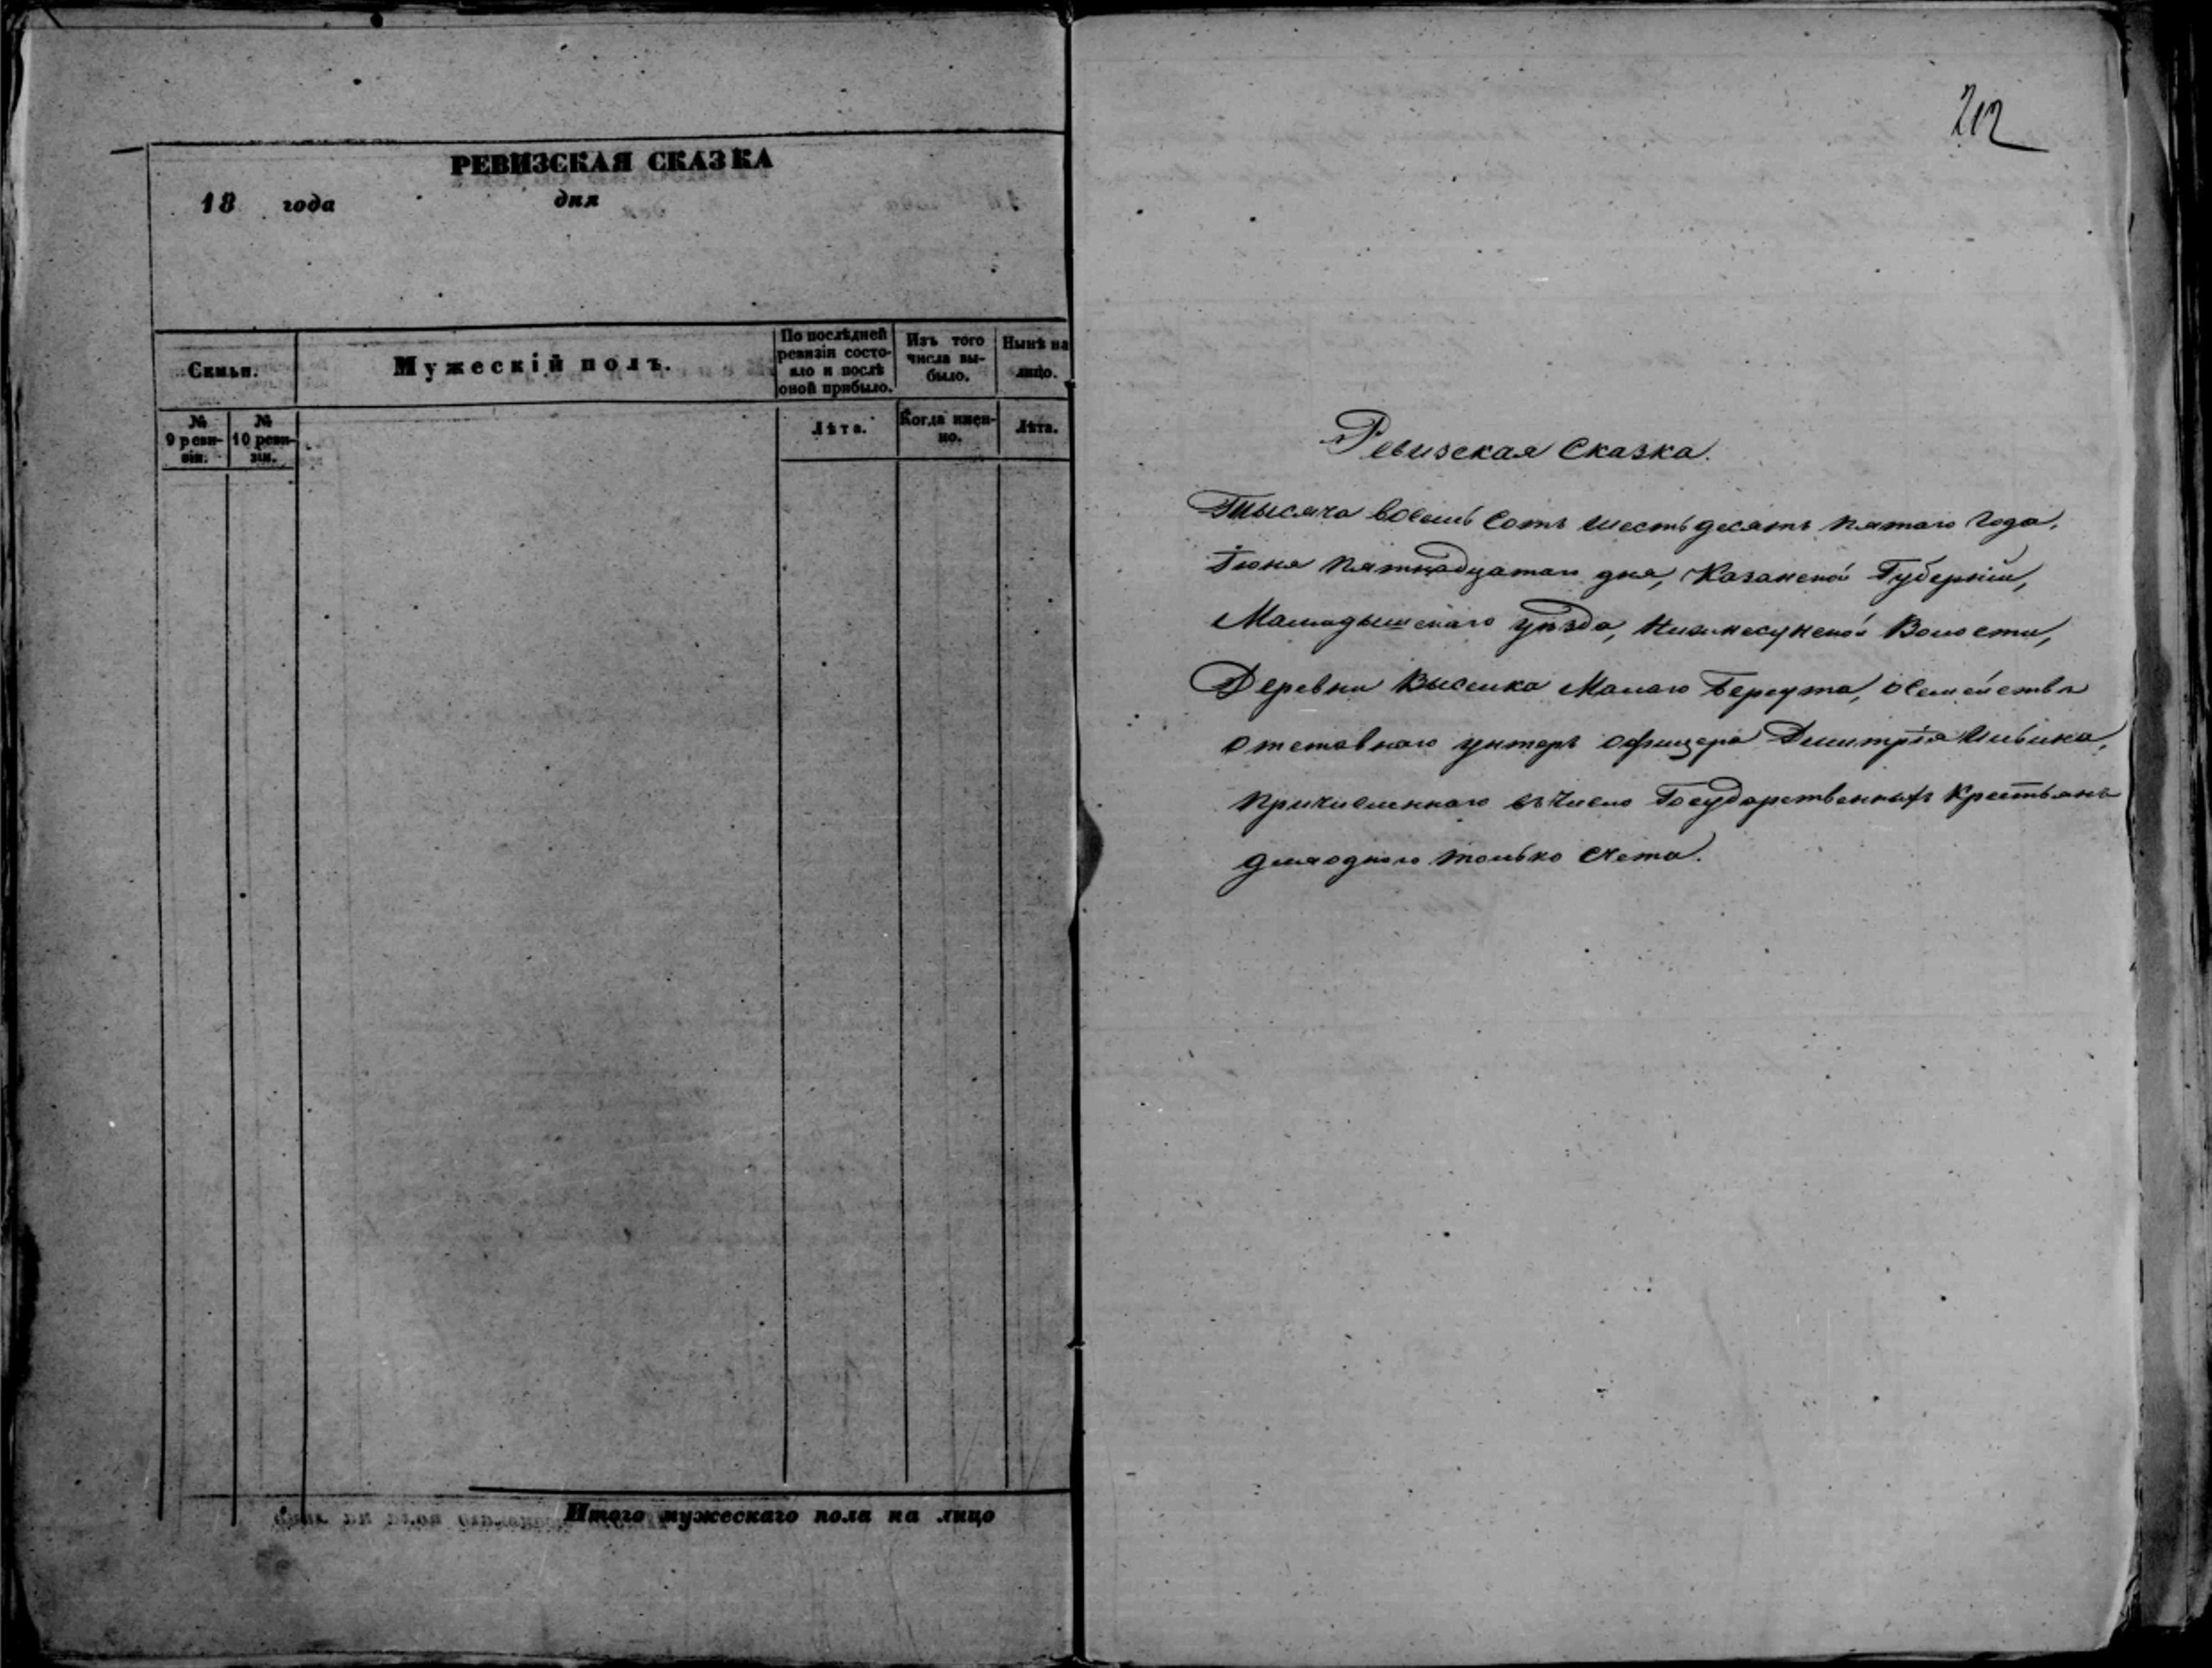 РЕВИЗСКАЯ СКАЗКА
18 года дня
Семьи.
Мужескій полъ.
По послѣдней ревизіи состо-
яло и послѣ
оной прибыло.
Изъ того
числа вы-
было.
Нынѣ на
лицо.
№
9 реви-
зіи.
№
10 реви-
зіи.
Лѣта.
Когда имен-
но.
Лѣта.
Итого мужескаго пола на лицо
212
Ревизская Сказка.
Тысяча восемь сотъ шестьдесятъ пятаго года.
Іюня пятнадцатаго дня, Казанской Губерніи,
Мамадышскаго уѣзда, Волости,
Деревни Выселка Малаго Берсута, о семействѣ
отставнаго унтеръ офицера Димитрія Ильина,
причисленнаго въ число Государственныхъ Крестьянъ
для одного только счета.